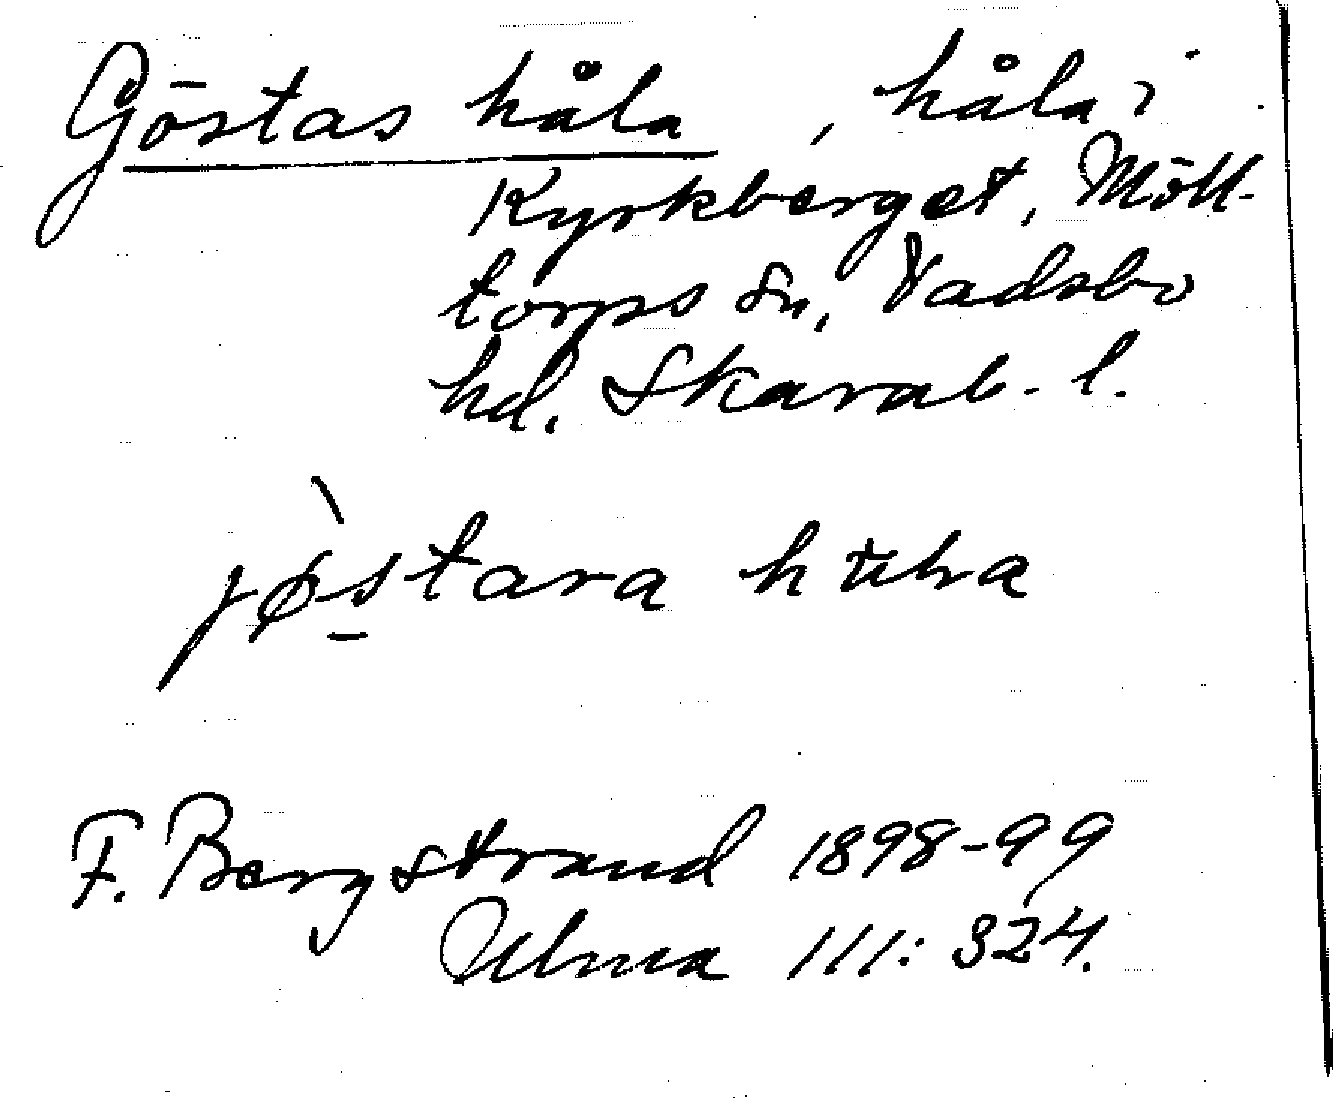 Göstas håla, håla i
Kyrkberget, Möll-
torps sn, Vadsbo
hd. Skarab. l.
F. Bergstrand 1898-99
Ulma 111: 324.